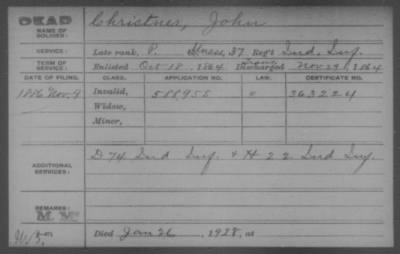 DEAD
NAME OF SOLDIER: Christner, John
SERVICE: Late rank, P. 37 Reg't Ind. Inf.
TERM OF SERVICE: Enlisted Oct 18, 1864 Discharged Nov 29, 1864
DATE OF FILING. CLASS. APPLICATION NO. LAW. CERTIFICATE NO.
1886 Nov. 9 Invalid, 588958 363224
Widow,
Minor,
ADDITIONAL SERVICES: D 74 Ind Inf. & H 22 Ind Inf.
REMARKS:
Died Jan 26, 1928, at